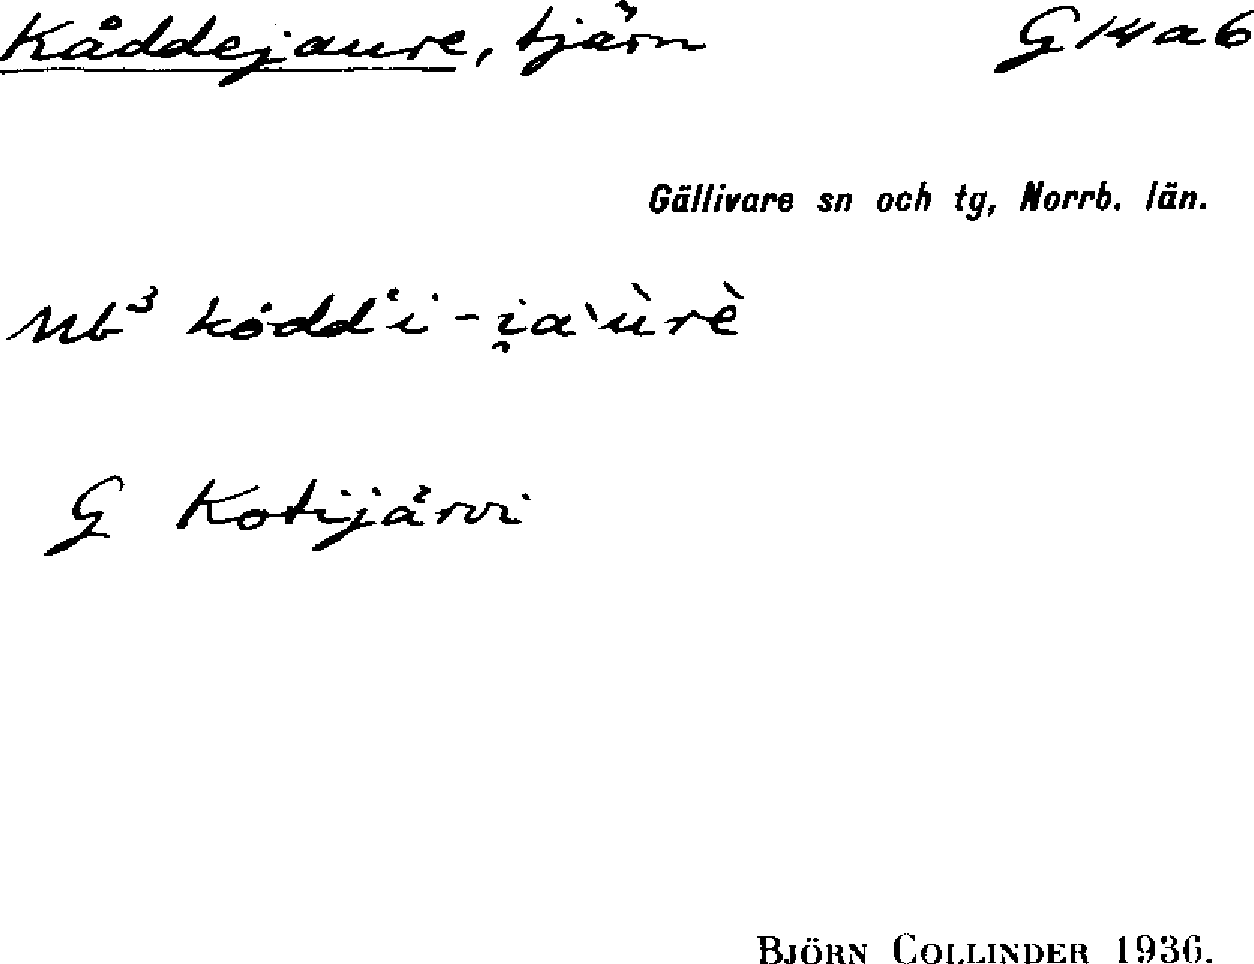 Kåddejaure, tjärn G 14 a 6
Gällivare sn och tg, Norrb. län.
Nb³ kådd'i - i̯a'ùrè
G Kotijärvi
BJÖRN COLLINDER 1936.